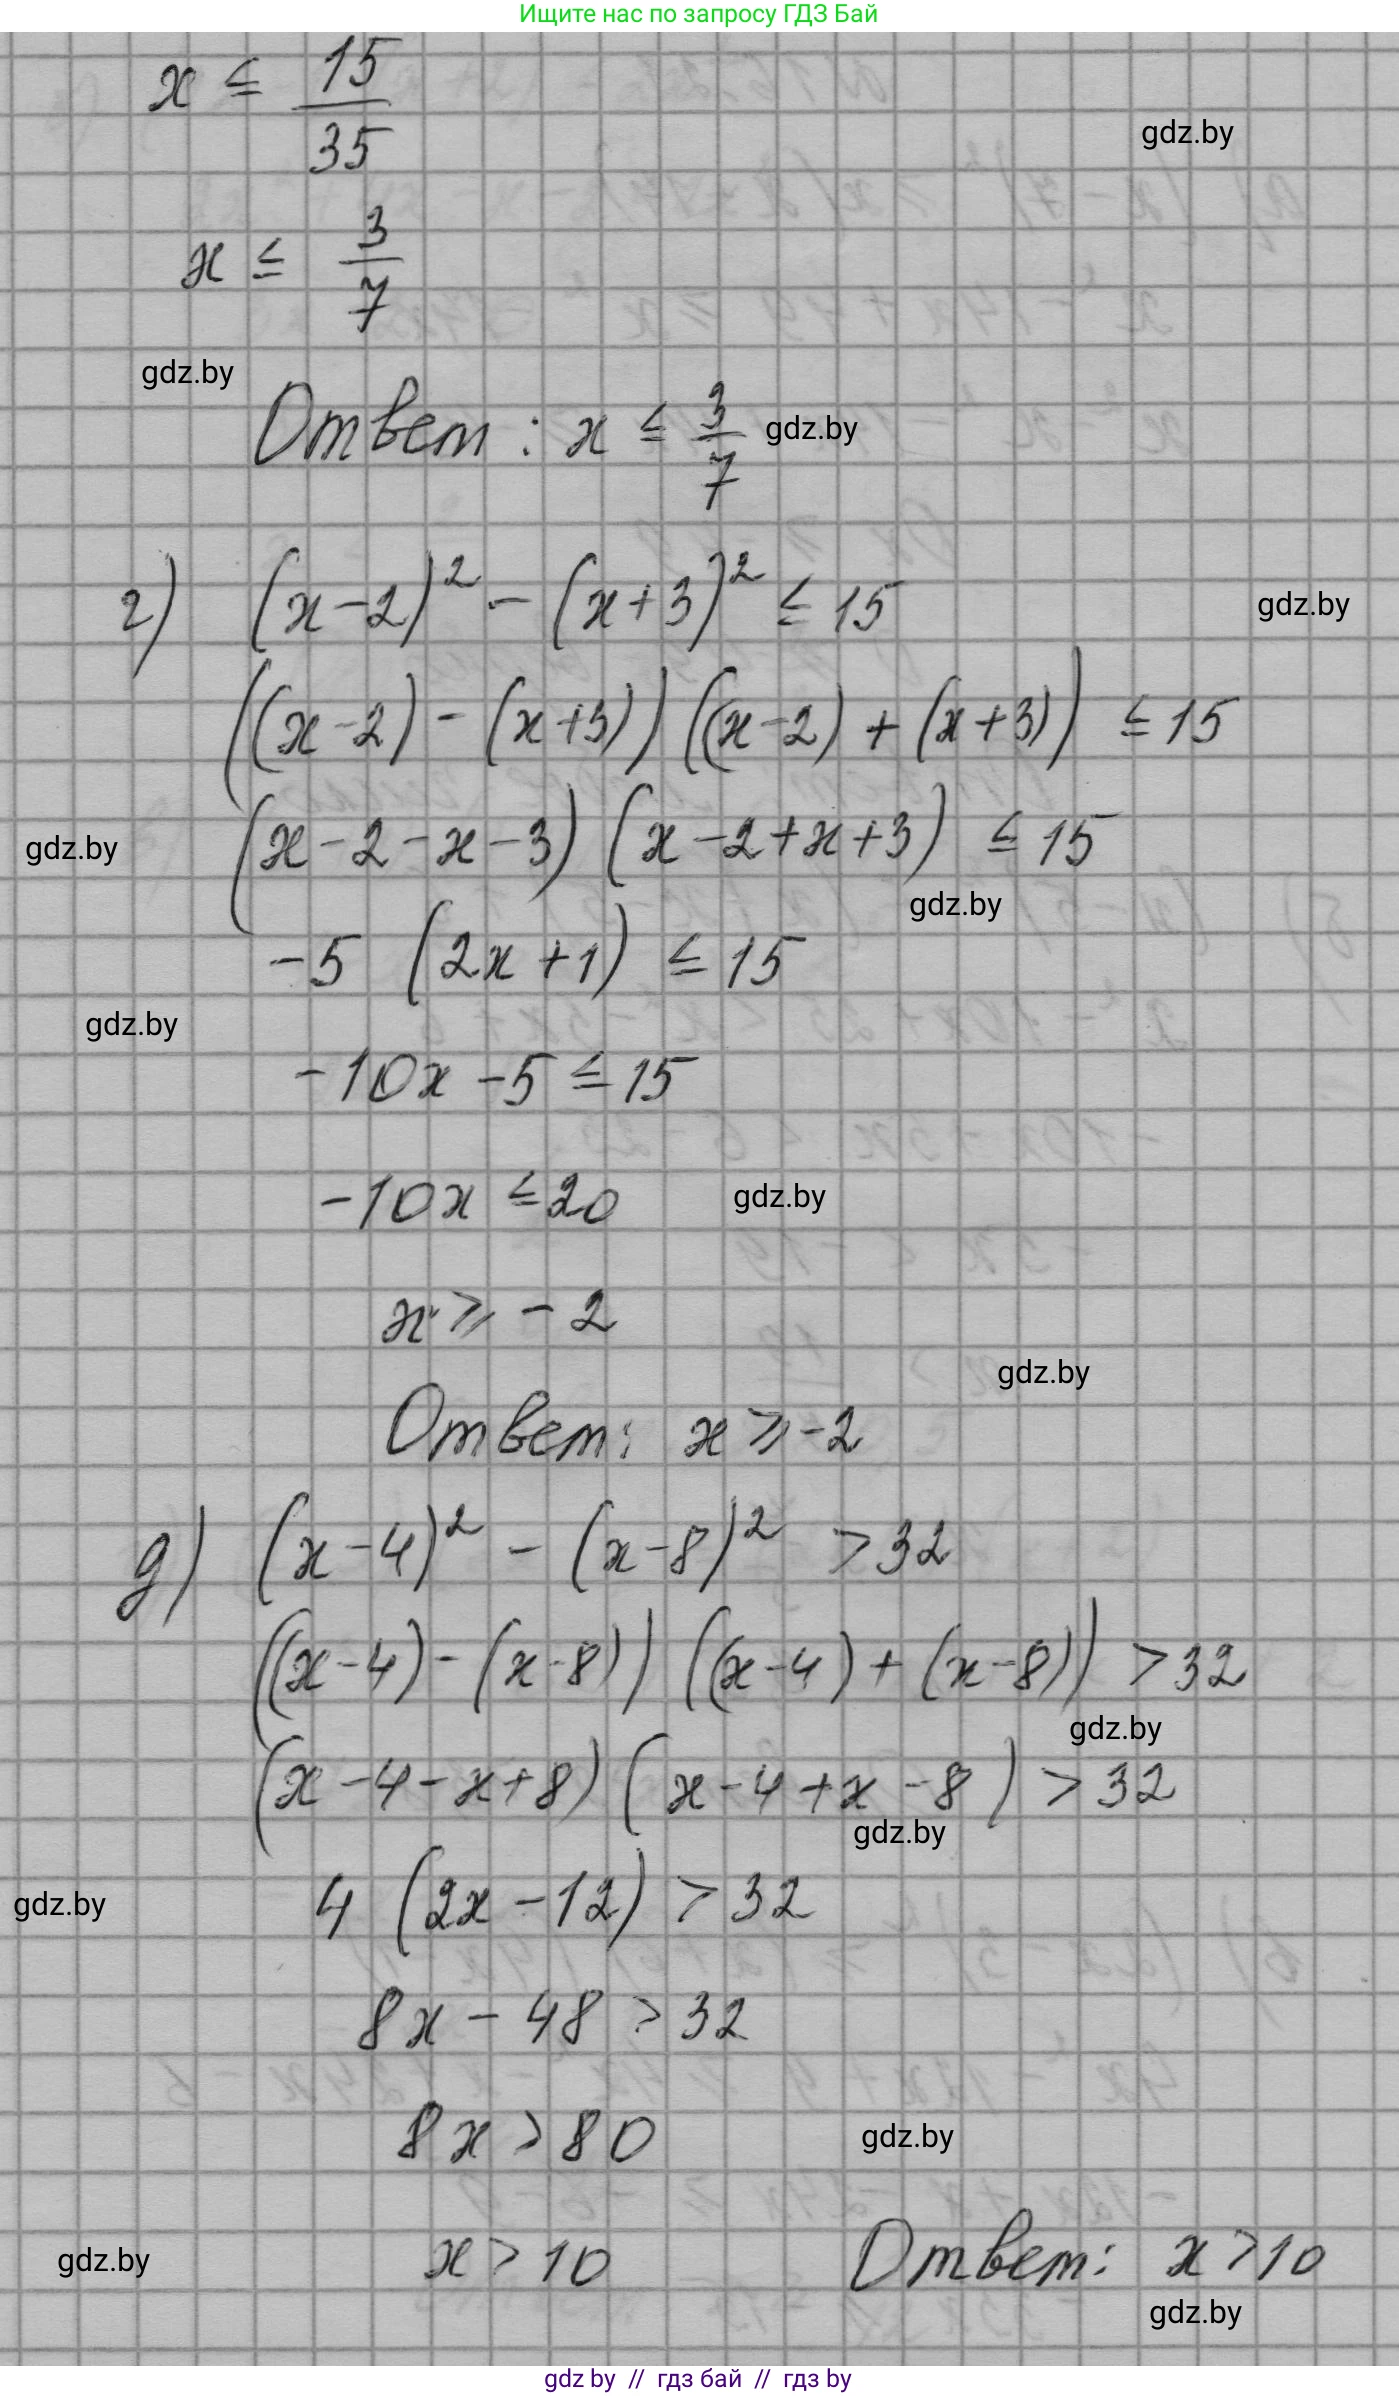 Ищите нас по запросу ГДЗ Бай
x ≤ 15/35
gdz.by
x ≤ 3/7
gdz.by
Ответ: x ≤ 3/7 gdz.by
г) (x-2)² - (x+3)² ≤ 15 gdz.by
((x-2) - (x+3)) ((x-2) + (x+3)) ≤ 15
gdz.by (x-2-x-3) (x-2+x+3) ≤ 15
gdz.by
-5 (2x+1) ≤ 15
gdz.by
-10x -5 ≤ 15
-10x ≤ 20 gdz.by
x ⩾ -2
gdz.by
Ответ: x ⩾ -2
д) (x-4)² - (x-8)² > 32
((x-4) - (x-8)) ((x-4) + (x-8)) > 32
gdz.by
(x-4-x+8) (x-4+x-8) > 32
gdz.by
gdz.by 4 (2x-12) > 32
8x - 48 > 32
8x > 80 gdz.by
gdz.by x > 10 Ответ: x > 10
gdz.by
gdz by // гдз бай // гдз by